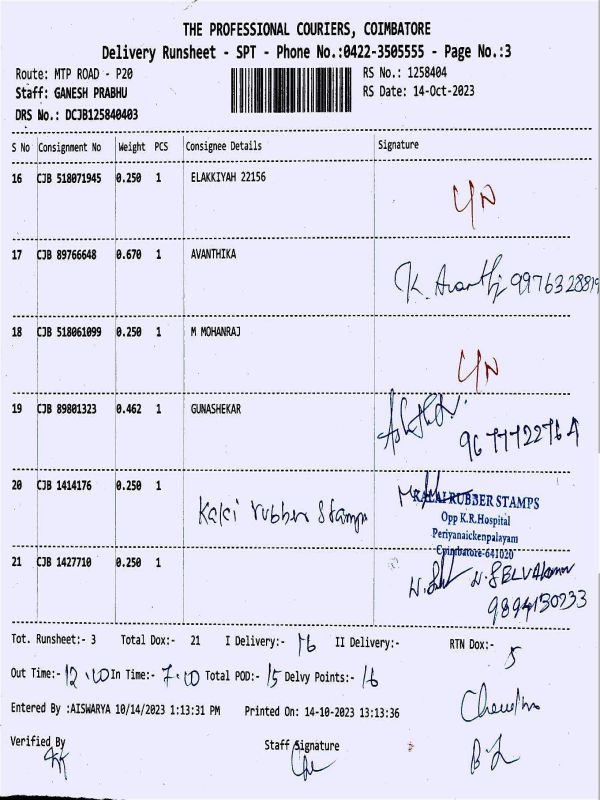 THE PROFESSIONAL COURIERS, COIMBATORE
Delivery Runsheet - SPT - Phone No.:0422-3505555 - Page No.:3
Route: MTP ROAD - P20 RS No.: 1258404
Staff: GANESH PRABHU RS Date: 14-Oct-2023
DRS No.: DCJB125840403
S No Consignment No Weight PCS Consignee Details Signature
16 CJB 518071945 0.250 1 ELAKKIYAH 22156
17 CJB 89766648 0.670 1 AVANTHIKA
18 CJB 518061099 0.250 1 M MOHANRAJ
19 CJB 89801323 0.462 1 GUNASHEKAR
9677722764
20 CJB 1414176 0.250 1 Kalai rubber Stamps
KALAI RUBBER STAMPS
Opp K.R.Hospital
Periyanaickenpalayam
Coimbatore-641020
21 CJB 1427710 0.250 1
9894130233
Tot. Runsheet:- 3 Total Dox:- 21 I Delivery:- 16 II Delivery:- RTN Dox:- 5
Out Time:- 12.00 In Time:- 7.00 Total POD:- 15 Delvy Points:- 16
Entered By :AISWARYA 10/14/2023 1:13:31 PM Printed On: 14-10-2023 13:13:36
Verified By Staff Signature